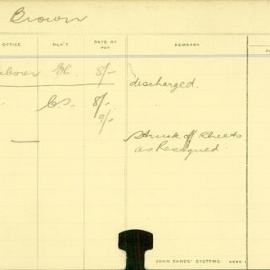 Brown
OFFICE DEP'T RATE OF PAY REMARKS
8/- discharged.
C.S. 8/-
9/-
Struck off Sheets
as Resigned
JOHN SANDS' SYSTEMS